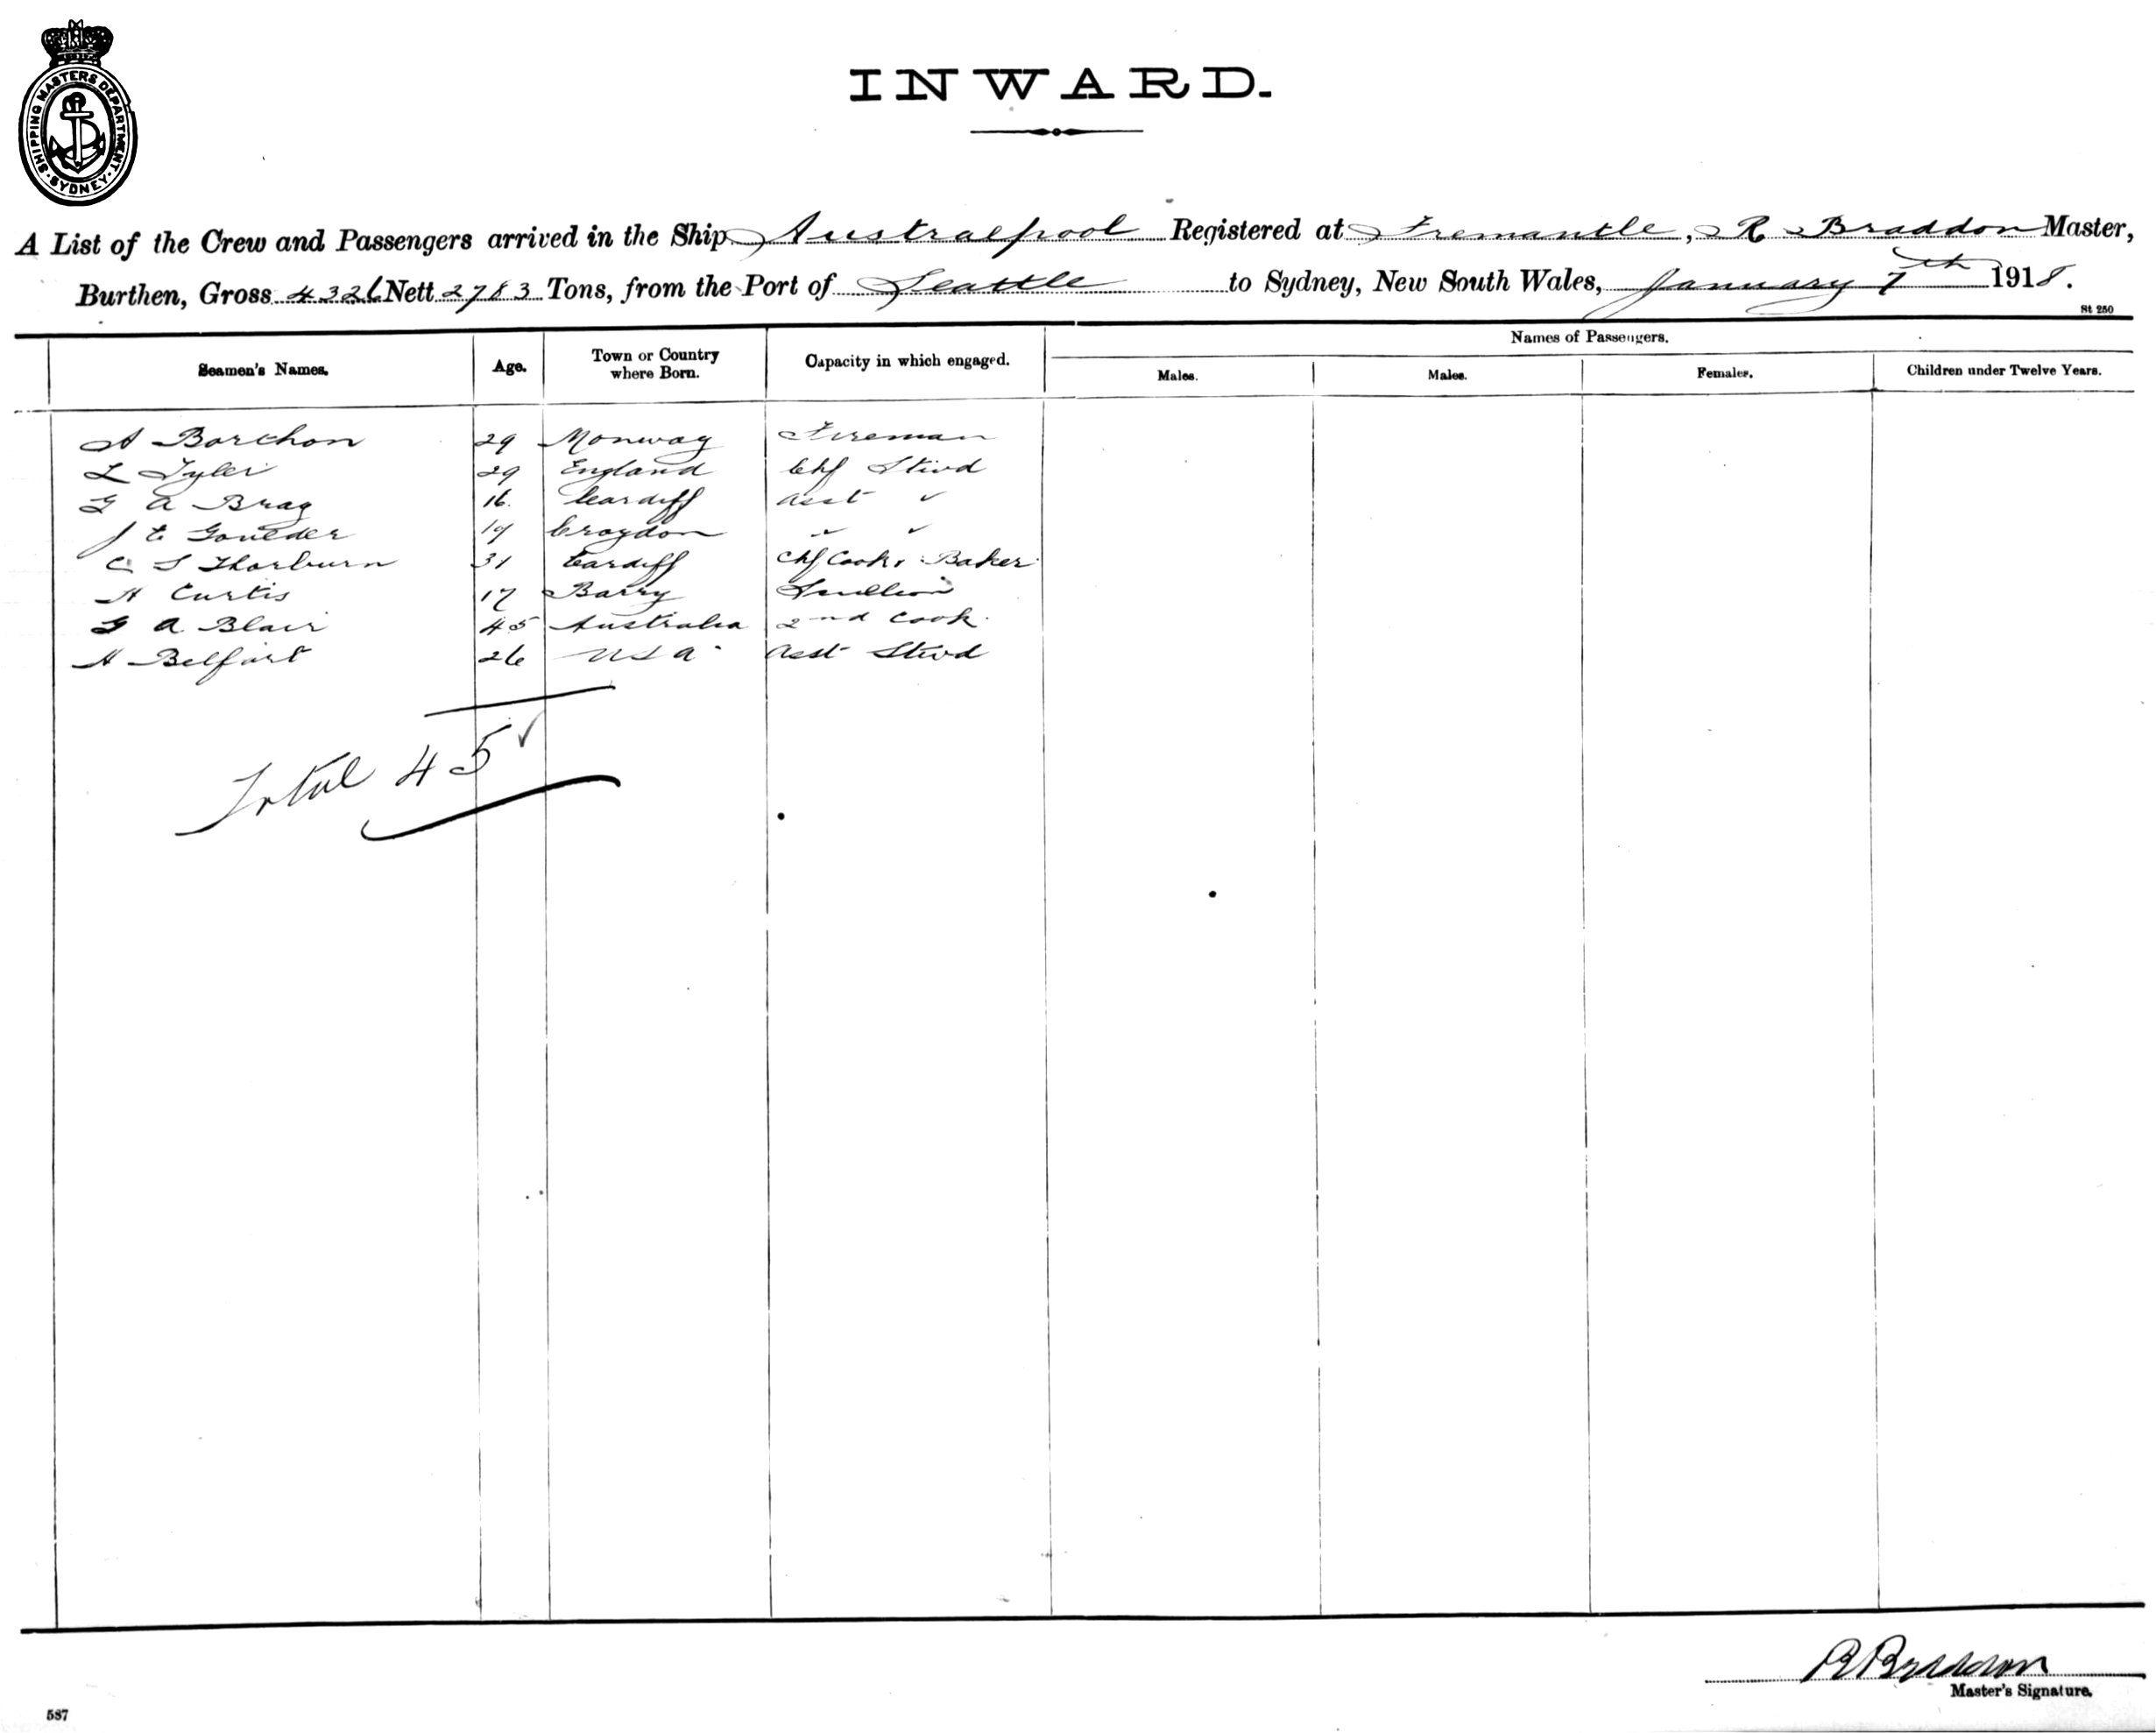 SHIPPING MASTERS DEPARTMENT. SYDNEY.
INWARD.
A List of the Crew and Passengers arrived in the Ship Australpool Registered at Fremantle, R Braddon Master,
Burthen, Gross 4326 Nett 2783 Tons, from the Port of Seattle to Sydney, New South Wales, January 7th 1918.
St 250
Names of Passengers.
Seamen's Names. Age. Town or Country where Born. Capacity in which engaged. Males. Males. Females. Children under Twelve Years.
A Borchon 29 Fireman
L Tyler 29 England Chf Stwd
G A Brag 16. Cardiff Asst "
J E 19 Croydon " "
C S Thorburn 31 Cardiff Chf Cook & Baker
A Curtis 17 Barry
G A Blair 45 Australia 2nd Cook.
A Belfort 26 U S A Asst Stwd
Total 45
R Braddon
Master's Signature.
587